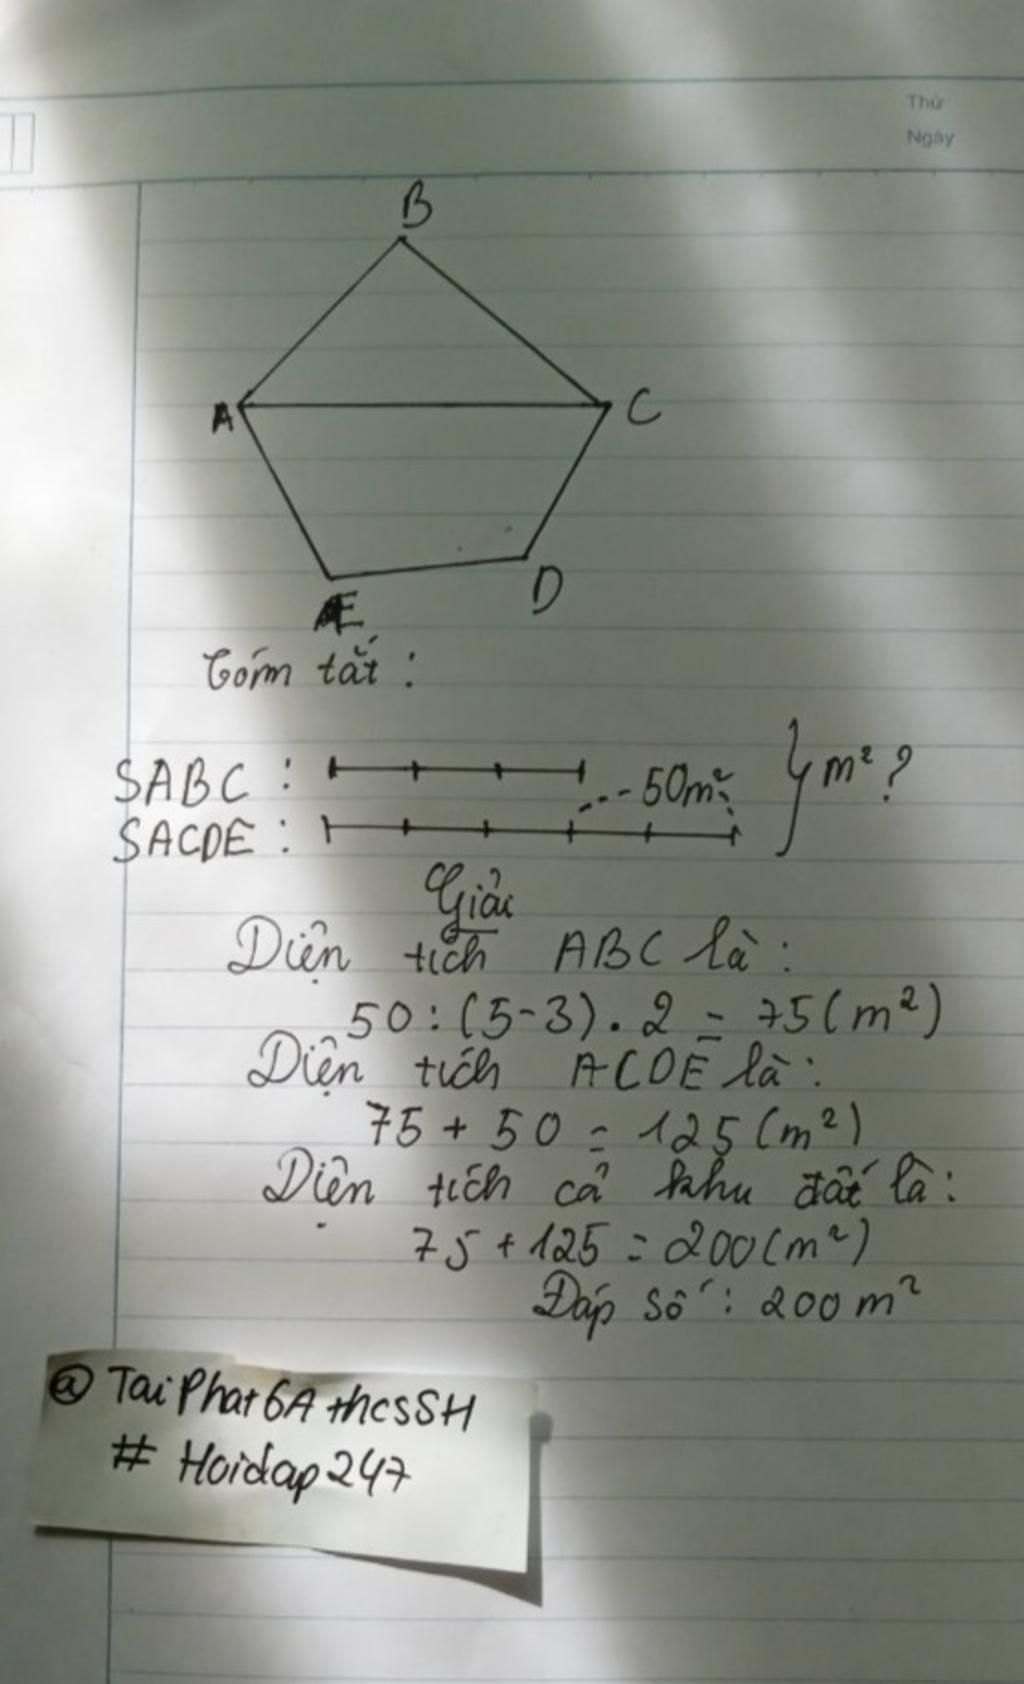 Thứ
Ngày
B
A
C
E
D
Tóm tắt :
SABC :
50m²
m² ?
SACDE :
Giải
Diện tích ABC là :
50 : (5-3) . 2 = 75 (m²)
Diện tích ACDE là :
75 + 50 = 125 (m²)
Diện tích cả khu đất là :
75 + 125 = 200 (m²)
Đáp số : 200 m²
@ TaiPhat6AthcsSH
# Hoidap247